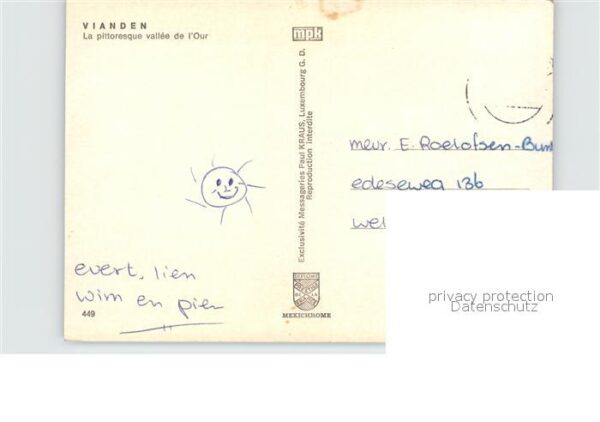 VIANDEN
La pittoresque vallée de l'Our
mpk
Exclusivité Messageries Paul KRAUS, Luxembourg G. D.
Reproduction interdite
mevr. E. Roelofsen-
edeseweg 136
evert, lien
wim en pier
449
MEXICHROME
privacy protection
Datenschutz